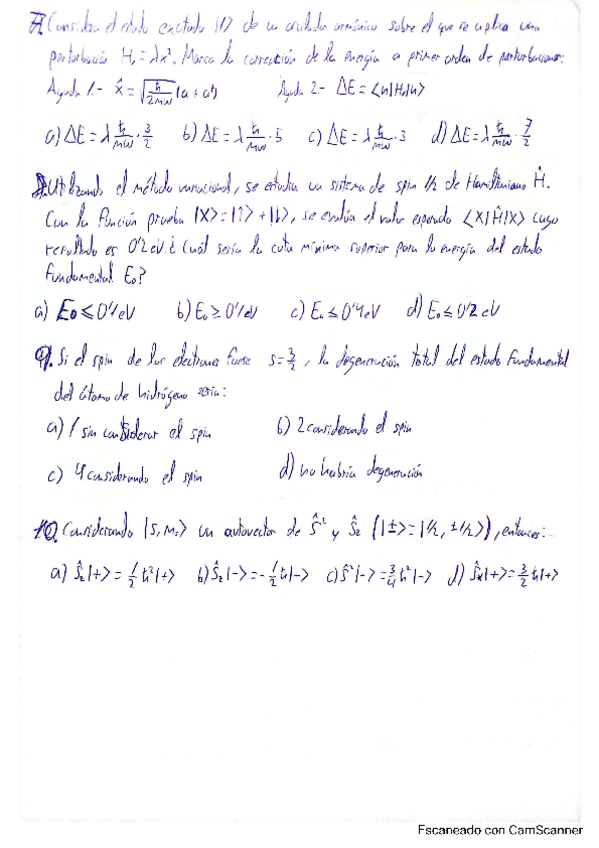 7. Considera el estado excitado |1> de un oscilador armónico sobre el que se aplica una
perturbación H₁ = λx². Marca la corrección de la energía a primer orden de perturbaciones:
Ayuda 1.- x̂ = √(ħ/2mω) (a + a†) Ayuda 2.- ΔE = <n|H₁|n>
a) ΔE = λ ħ/mω · 3/2 b) ΔE = λ ħ/mω · 5 c) ΔE = λ ħ/mω · 3 d) ΔE = λ ħ/mω · 7/2
8. Utilizando el método variacional, se estudia un sistema de spin 1/2 de Hamiltoniano Ĥ.
Con la función prueba |X> = |↑> + |↓>, se evalúa el valor esperado <X|Ĥ|X> cuyo
resultado es 0'2 eV ¿Cuál sería la cota mínima superior para la energía del estado
fundamental E₀?
a) E₀ ≤ 0'1 eV b) E₀ ≥ 0'1 eV c) E₀ ≤ 0'4 eV d) E₀ ≤ 0'2 eV
9. Si el spin de los electrones fuese s = 3/2, la degeneración total del estado fundamental
del átomo de hidrógeno sería:
a) 1 sin considerar el spin b) 2 considerando el spin
c) 4 considerando el spin d) no habría degeneración
10. Considerando |s, mₛ> un autovector de Ŝ² y Ŝz (|±> = |1/2, ±1/2>), entonces:
a) Ŝz|+> = 1/2 ħ²|+> b) Ŝz|-> = -1/2 ħ|-> c) Ŝ²|-> = 3/4 ħ²|-> d) Ŝx|+> = 3/2 ħ|+>
Escaneado con CamScanner